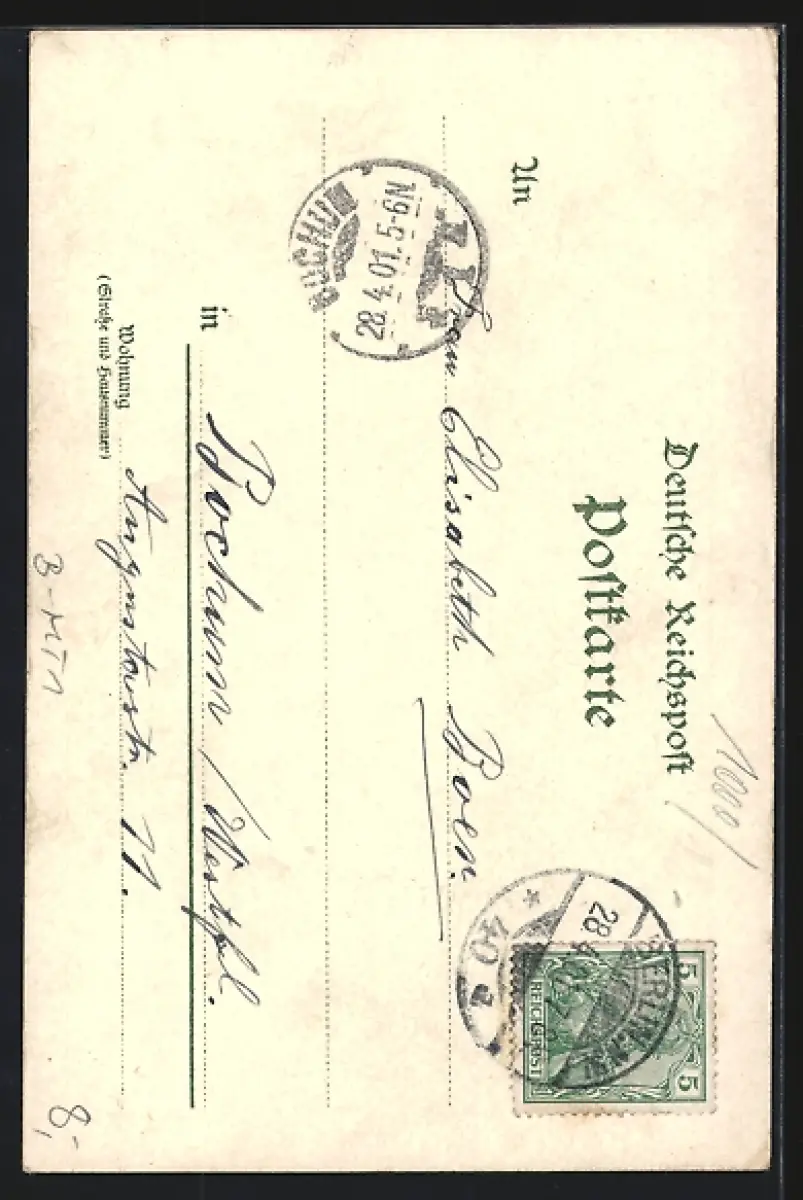 Deutsche Reichspost
Postkarte
5 5
REICHSPOST
BERLIN
28.4
* 40 a
An
Frau Elisabeth Boen.
BOCHUM
28.4.01.5-6N
in
Bochum / Westfl.
Wohnung
(Straße und Hausnummer)
Augustastr. 11.
1000/
B-MT1
8,-